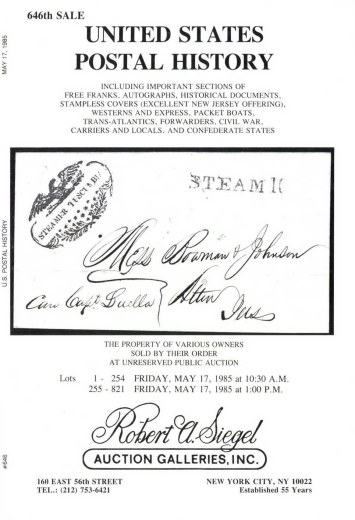 646th SALE
UNITED STATES
POSTAL HISTORY
INCLUDING IMPORTANT SECTIONS OF
FREE FRANKS, AUTOGRAPHS, HISTORICAL DOCUMENTS,
STAMPLESS COVERS (EXCELLENT NEW JERSEY OFFERING),
WESTERNS AND EXPRESS, PACKET BOATS,
TRANS-ATLANTICS, FORWARDERS, CIVIL WAR,
CARRIERS AND LOCALS, AND CONFEDERATE STATES
STEAMER
STEAM
Mess Bowman & Johnson
Care Capt
Alton
THE PROPERTY OF VARIOUS OWNERS
SOLD BY THEIR ORDER
AT UNRESERVED PUBLIC AUCTION
Lots 1 - 254 FRIDAY, MAY 17, 1985 at 10:30 A.M.
255 - 821 FRIDAY, MAY 17, 1985 at 1:00 P.M.
Robert A. Siegel
AUCTION GALLERIES, INC.
160 EAST 56th STREET NEW YORK CITY, NY 10022
TEL.: (212) 753-6421 Established 55 Years
MAY 17, 1985
U.S. POSTAL HISTORY
#646